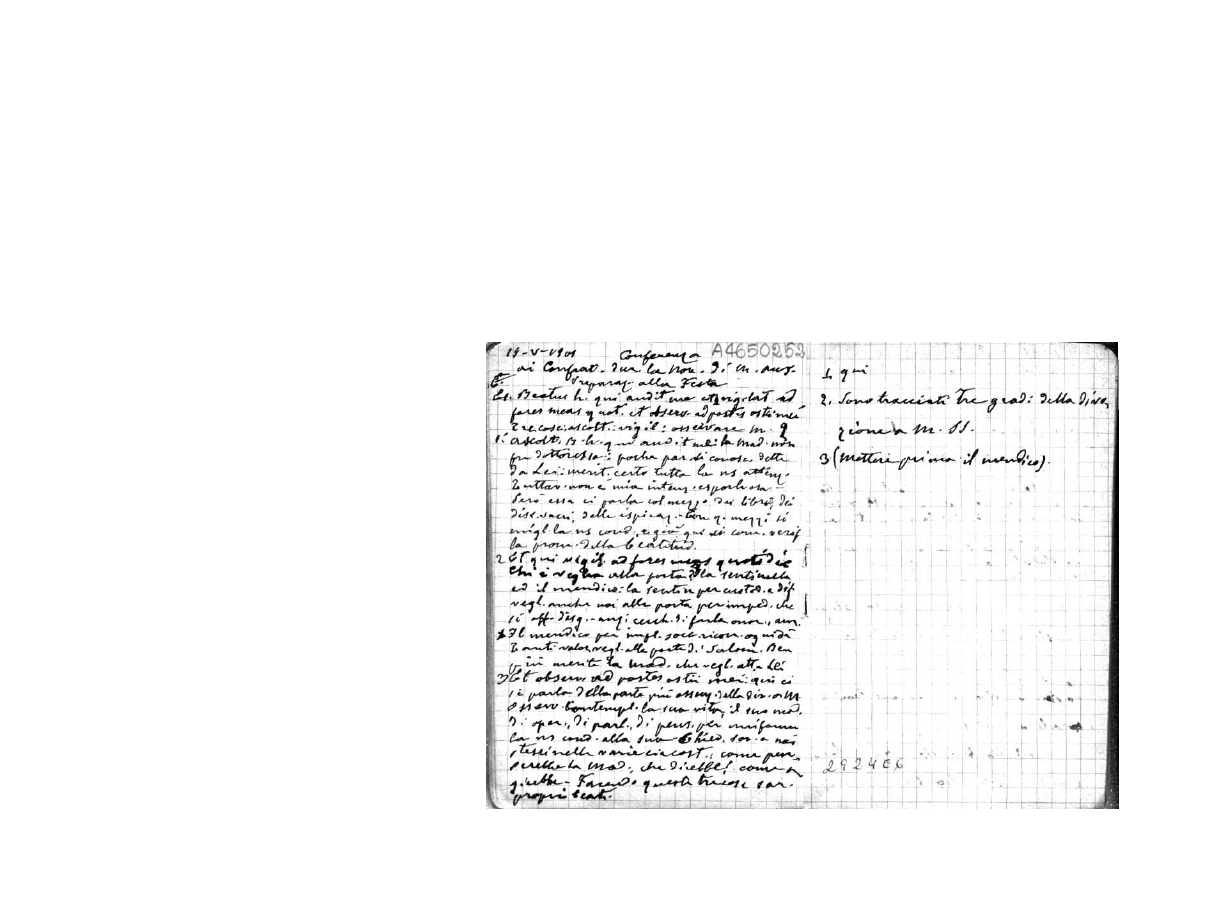 19-V-1901 Conferenza A4650252
ai Confrat. sur la Nov. di M. Aus.
Preparaz. alla Festa
Es. Beatus h. qui audit me et vigilat ad
fores meas quot. et observ. ad postes ostii mei
Tre cose: ascolt.: vigil.: osservare M.
1. ascolt. B. h. qui audit me: la Mad. non
fu dottoressa: poche par. di conosc. dette
da Lei: merit. certo tutta la ns attenz.
Tuttav. non è mia intenz. esporle ora
Però essa ci parla col mezzo dei libri, dei
disc. sacri, delle ispiraz. - Con q. mezzi si
migl. la ns cond. e già qui si com. verif
la prom. della beatitud.
2 Et qui vigil. ad fores meas quotidie
Chi è veglia alla porta: la sentinella
ed il mendico: la sentin. per custod. e dif
vegl. anche noi alle porte per imped. che
si off. disg. anzi cerch. di farla onor., am.
Il mendico per impl. socc. ricor. ogni dì
Tanti valor. vegl. alle porte di Salom. Ben
più merita la Mad. che vegl. att. a Lei
3 Et observ. ad postes ostii mei: qui ci
si parla della parte più essenz. della div. a M
Osserv. Contempl. la sua vita, il suo mod.
di oper., di parl., di pens. per uniform
la ns cond. alla sua Chied. sov. a noi
stessi nelle varie circost.: come pen
serebbe la Mad., che direbbe, come a
girebbe - Facendo queste tre cose sar.
proprii beati.
1 qui
2. Sono tracciati tre gradi della divo
zione a M. SS.
3 (Mettere prima il mendico).
2924E6